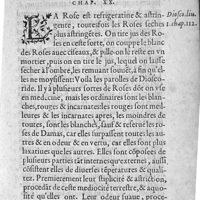 CHAP. XX.
LA Rose est refrigeratine & astrin-
gente, toutesfois les Roses seches
plus astringêtes. On tire jus des Ro-
ses en ceste sorte, on couppe le blanc
des Roses auec ciseaux, & pille-on le reste en vn
mortier, puis on en tire le jus, lequel on laisse
secher à l'ombre, les remuant souuêt, afin qu'el-
les ne moisissent. Voila les parolles de Dioscori-
de. Il y a plusieurs sortes de Roses dont les blan-
ches, rouges & incarnates
les rouges sont meil-
leures & les incarnates apres, les moindres de
toutes, sont les blanches, sauf & reserué les ro-
ses de Damas, car elles surpassent toutes les au-
tres & en odeur & en vertu, car elles sont plus
fixatiues que les autres. Elles sont côposees de
plusieurs parties tât internes qu'externes, aussi
estants elles de diuerses têperatures & quali-
tez. Premierement leur stipticité & astriction,
procedât de ceste mediocrité terrestre, & aquo-
sité qu'elles ont. Leur odeur suaue, proce-
Diosco. liu.
1. chap. 112.